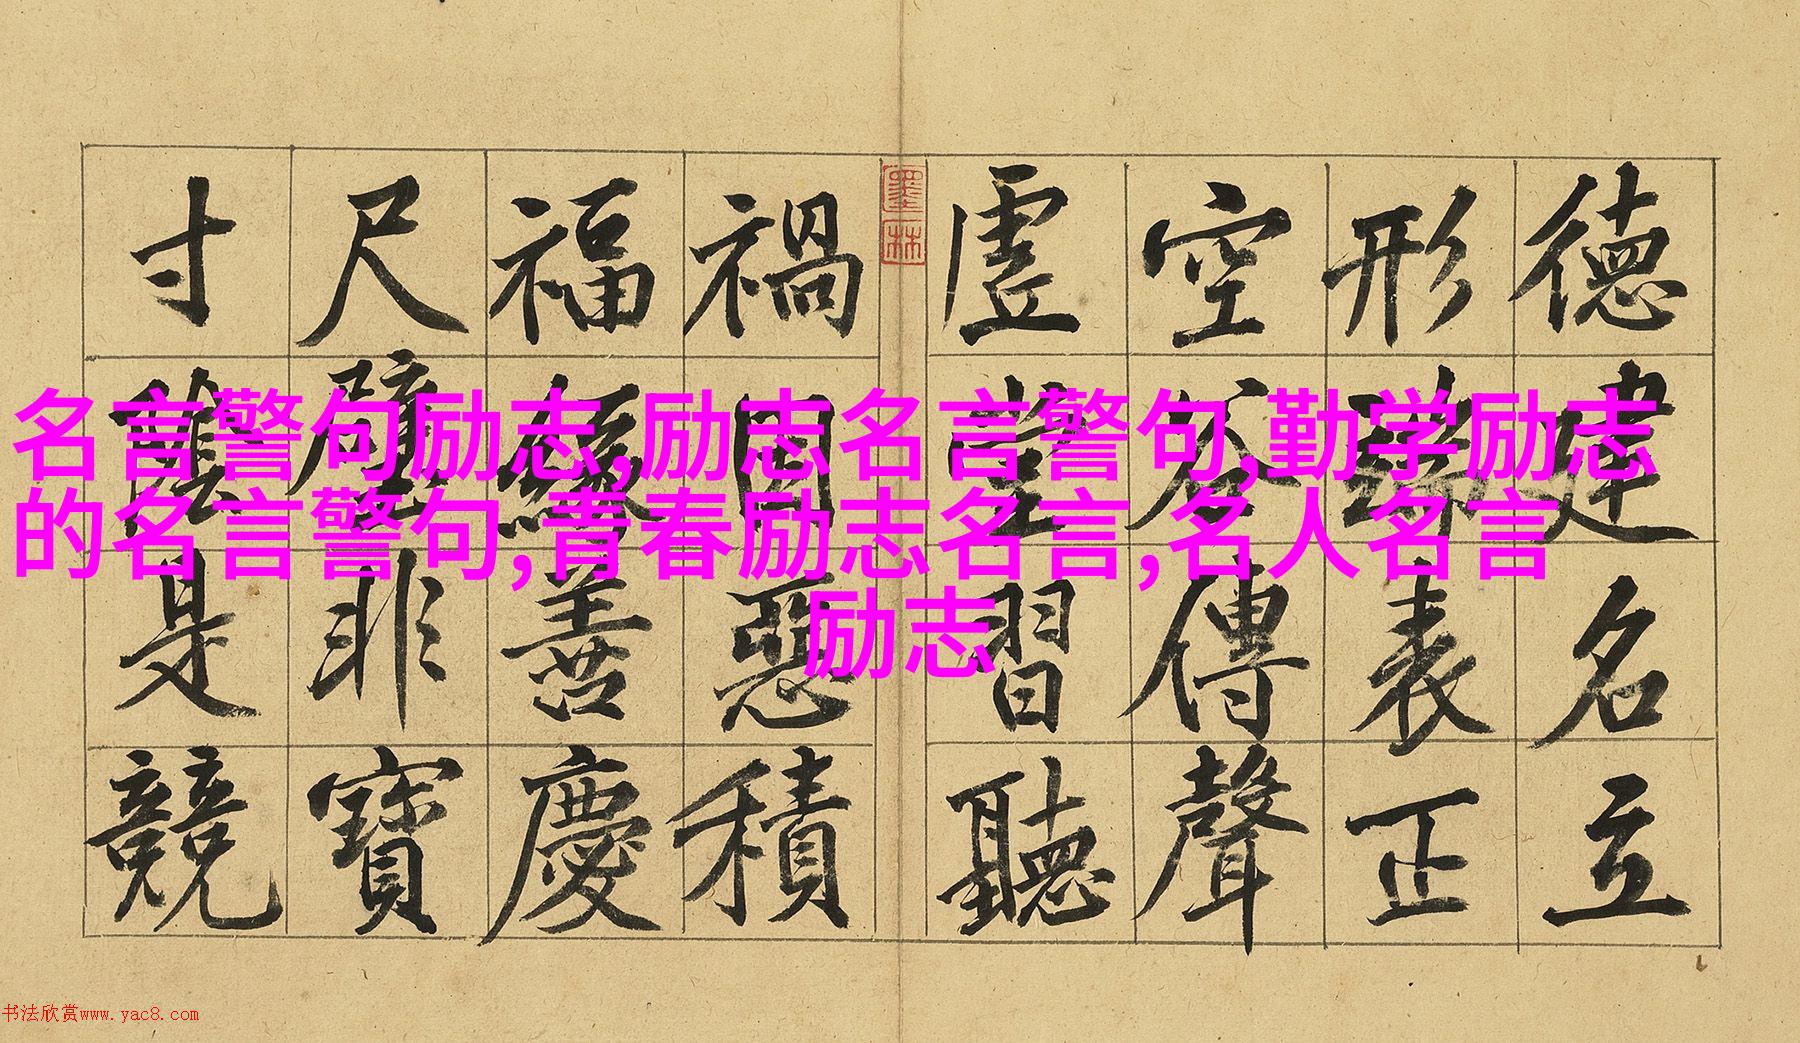 德建名立
形端表正
空谷傳聲
虛堂習聽
禍因惡積
福緣善慶
尺璧非寶
寸陰是競
墨林
名言警句励志,励志名言警句,勤学励志
的名言警句,青春励志名言,名人名言
励志
书法欣赏www.yac8.com